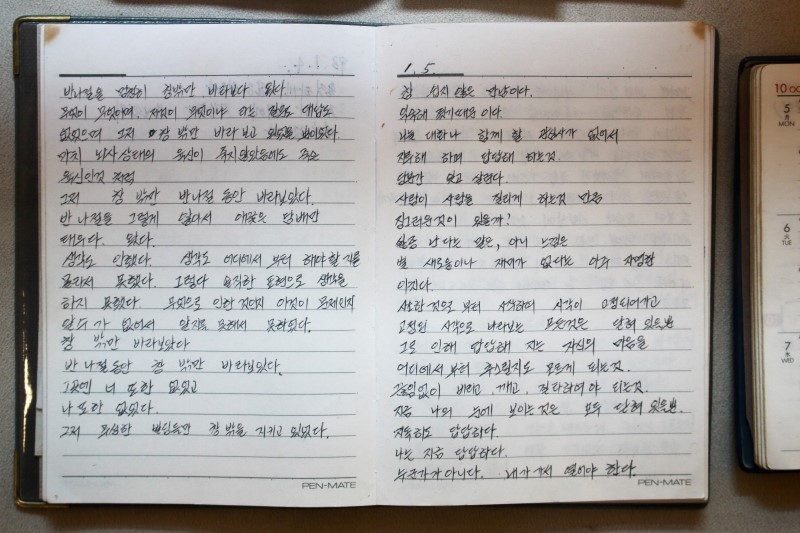 반나절을 창밖만 바라보다 왔다.
무엇이 무엇이며, 저것이 무엇이냐 하는 대답도
없었으며 그저 창 밖만 바라 보고
마치 뇌사상태의 육신이 죽지않았음에도 죽은
육신인것 처럼
그저 창 밖만 반나절 동안 바라보았다.
반나절을 그렇게 앉아서 애꿎은 담배만
태우다. 왔다.
생각도 안했다. 생각도 어디에서 부터 해야 할 지를
몰라서 못했다. 그렇다 솔직한 표현으로 생각을
하지 못했다. 무엇으로 인한 것인지 어것이 문제인지
알 수 가 없어서 알지를 못해서 못하였다.
창 밖만 바라보았다
반 나절 동안 창 밖만 바라보았다.
그곳엔 너 또한 없었고
나 또한 없었다.
그저 창 밖을 지키고 있었다.
1. 5.
참 쉽지 않은 만남이다.
익숙해 졌기때문 이다.
나눌 대화나 함께 할 관심사가 없어서
진부해 하며 답답해 하는것.
담배만 물고 살린다.
사람이 사람을 질리게 하는것 만큼
징그러운것이 있을까?
싫증 난 다는 말은, 아니 느낌은
별 새로움이나 재미가 없다는 아주 자명한
이치다.
사소한 것으로 부터 시작하여 시각이 고정되어가고
고정된 시각으로 바라보는 모든것은 닫혀 있을뿐
그로 인해 답답해 지는 자신의 마음을
어디에서 부터 추스릴지도 모르게 되는것.
끊임없이 버리고, 깨고, 질타하여야 되는것.
지금 나의 눈에 보이는것은 모두 닫혀 있을뿐.
지독히도 답답하다.
나는 지금 답답하다.
누군가가 아니다. 내가 가서 열어야 한다.
PEN-MATE
PEN-MATE
10 OC
5
月
MON
6
火
TUE
7
水
WED